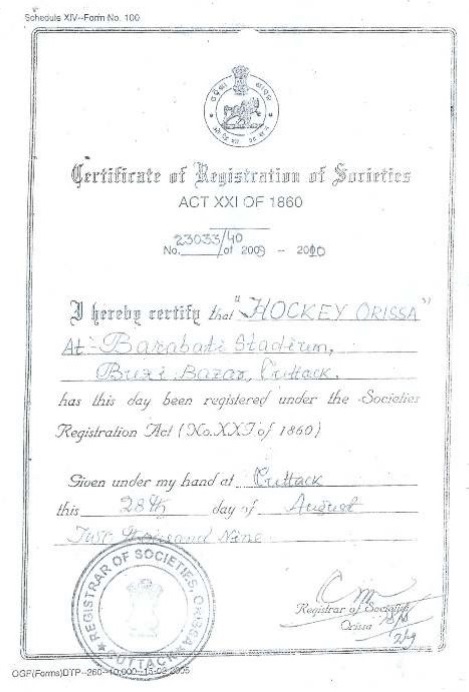 Schedule XIV--Form No. 100
Certificate of Registration of Societies
ACT XXI OF 1860
23033/40
No. of 2009 -- 2010
I hereby certify that "HOCKEY ORISSA"
At - Barabati Stadium,
Buxi Bazar, Cuttack.
has this day been registered under the Societies
Registration Act (No.XXI of 1860)
Given under my hand at Cuttack
this 28th day of August
Two Thousand Nine
REGISTRAR OF SOCIETIES, ORISSA
CUTTACK
Registrar of Societies
Orissa
OGP(Forms)DTP--260--10,000--15-02-2005